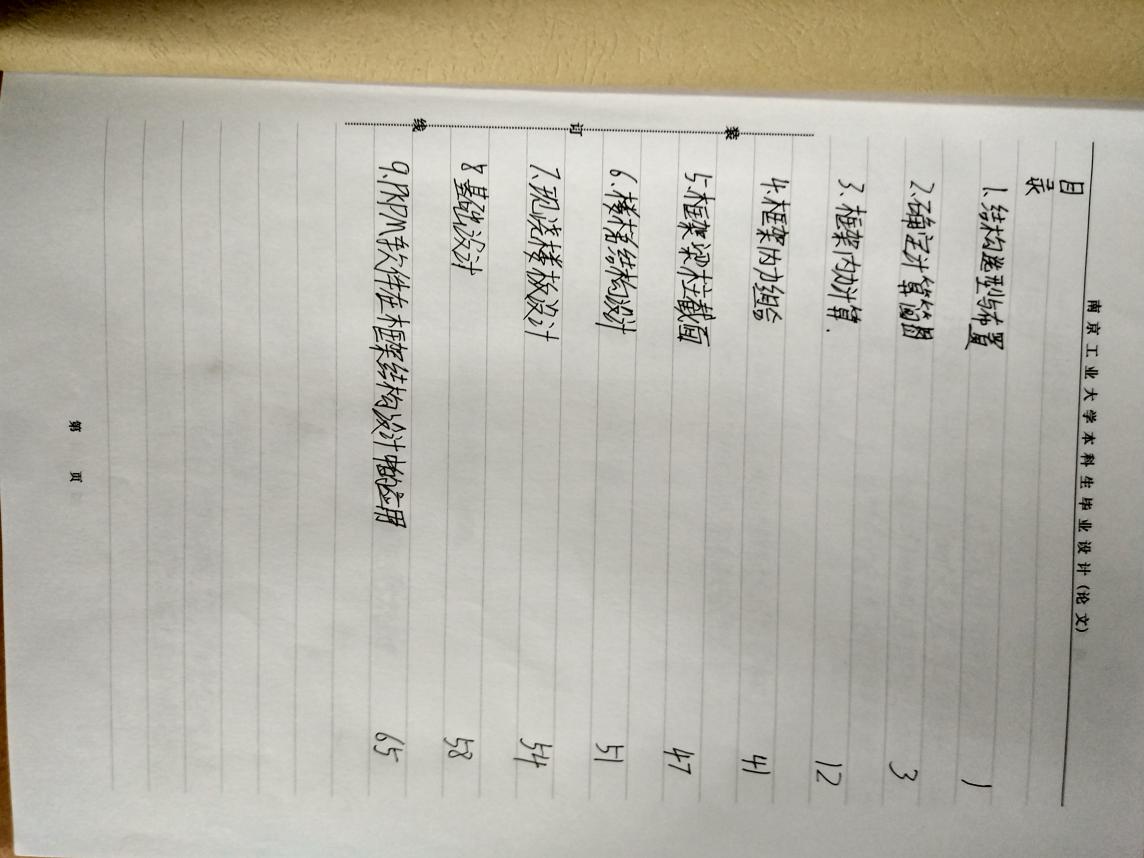 南京工业大学本科生毕业设计(论文)
目录
1.结构选型与布置 1
2.确定计算简图 3
3.框架内力计算. 12
4.框架内力组合 41
5.框架梁柱截面 47
6.楼梯结构设计 51
7.现浇楼板设计 54
8.基础设计 58
9.PKPM软件在框架结构设计中的应用 65
装
订
线
第 页